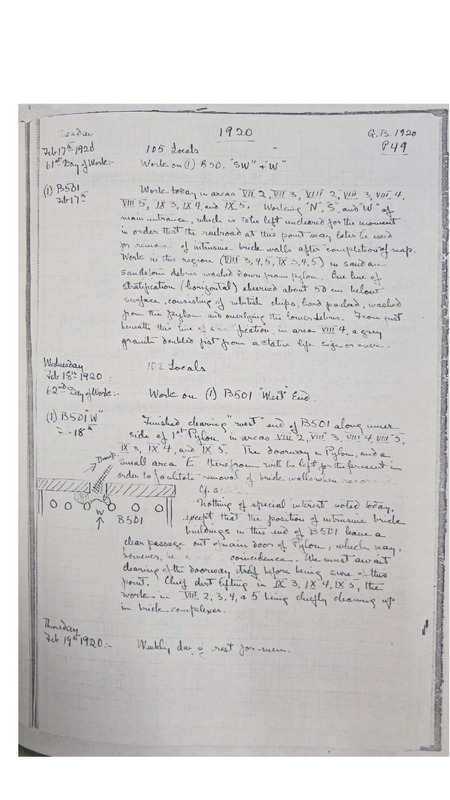 1920
G.B. 1920
P49
Feb 17th 1920
105 Locals
61st Day of Work:-
Work on (1) B 50. "SW" + "W"
(1) B501
Feb 17th
Work today in areas VII 2, VII 3, VIII 2, VIII 3, VIII 4,
VIII 5, IX 3, IX 4, and IX 5. Working "N", "S", and "W" of
main entrance, which is to be left uncleared for the moment
in order that the railroad at this point may later be used
for removal of intrusive brick walls after completion of map.
Work in this region (VIII 3, 4, 5, IX 3, 4, 5) in sand and
sandstone debris washed down from pylon. One line of
stratification (horizontal) observed about 50 cm below
surface, consisting of whitish chips, hard packed, washed
from the pylon and overlying the lower debris. From just
beneath this line of stratification, in area VIII 4, a grey
granite doubled fist from a statue life size or over.
Wednesday
Feb 18th 1920
102 Locals
62nd Day of Work:-
Work on (1) B501 "West" End.
(1) B501 "W"
18th
Finished clearing "west" end of B501 along inner
side of 1st Pylon in areas VIII 2, VIII 3, VIII 4, VIII 5,
IX 3, IX 4, and IX 5. The doorway in Pylon, and a
small area "E" therefrom will be left for the present in
order to facilitate removal of brick walls when
Cf.
Dump
Nothing of special interest noted today,
except that the position of intrusive brick
W
B501
buildings in this end of B501 leave a
clear passage out of main door of Pylon, which may,
however, be coincidence. We must await
clearing of the doorway itself before being sure of this
point. Chief dirt lifting in IX 3, IX 4, IX 5, the
work in VIII 2, 3, 4, & 5 being chiefly cleaning up
in brick complexes.
Thursday
Feb 19th 1920:-
Weekly day of rest for men.